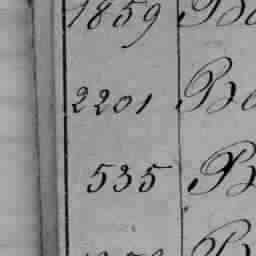 1859 Be
2201 Be
535 B
B